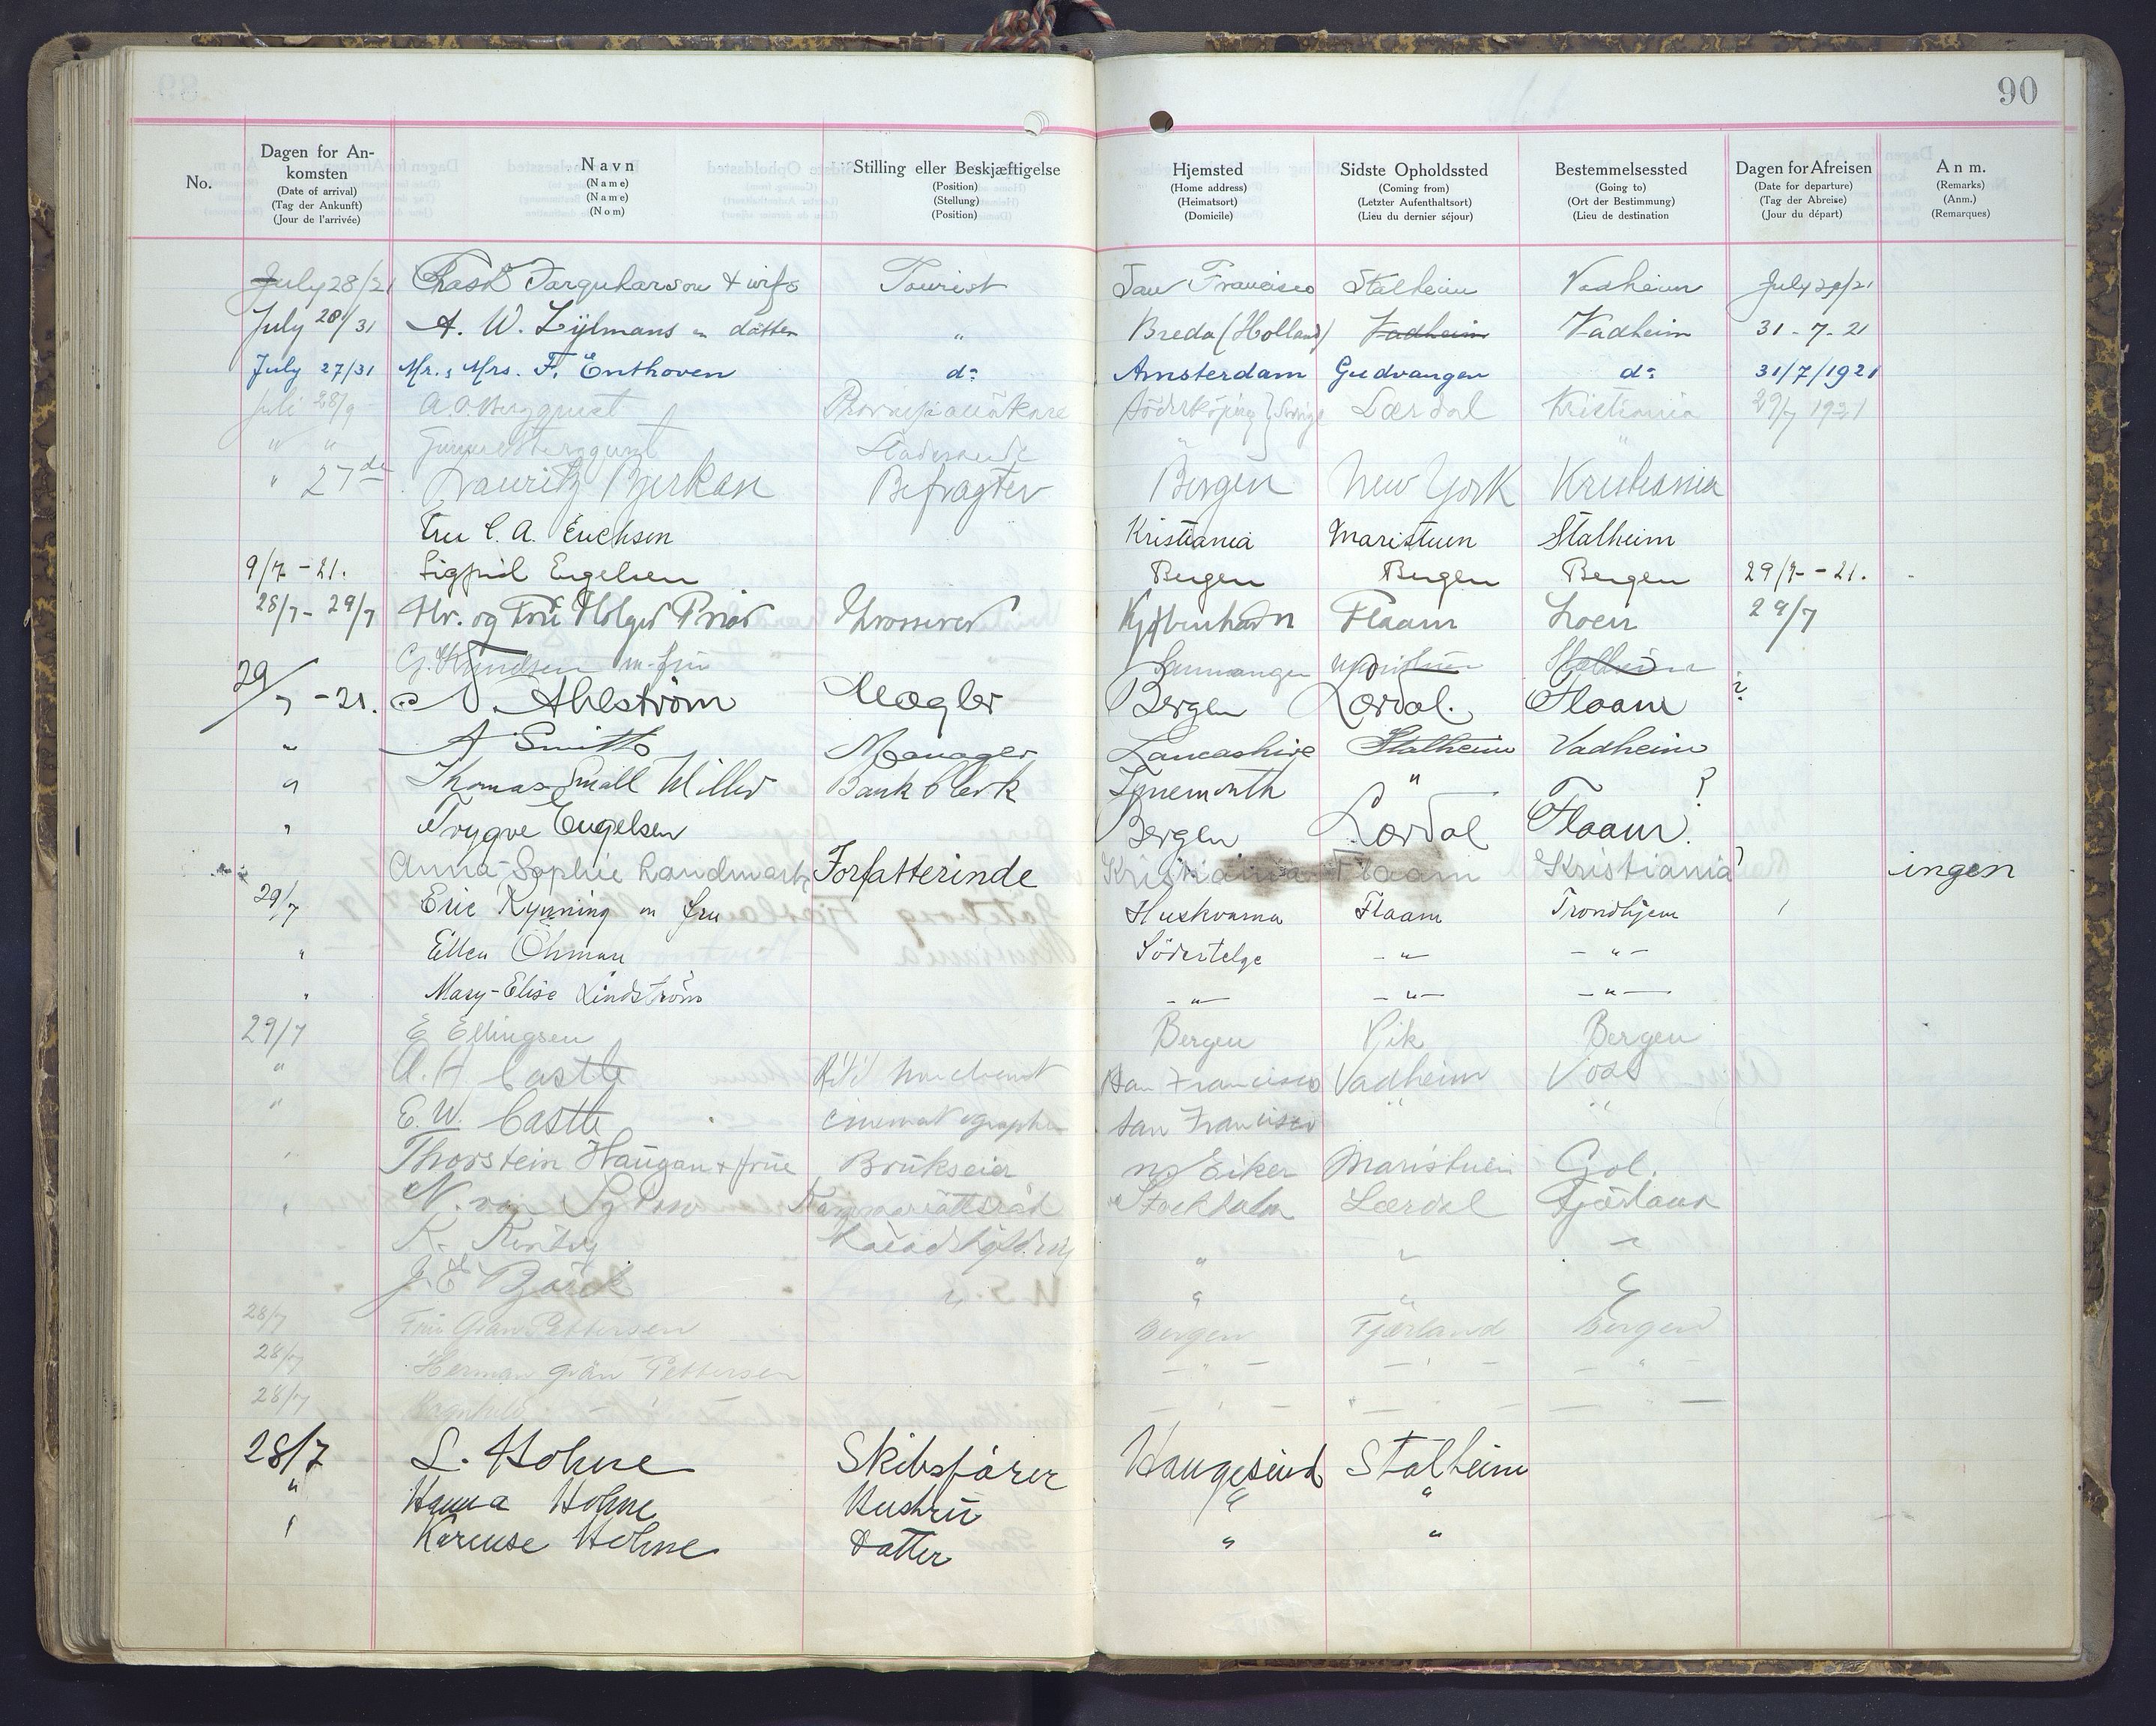 90
No. Dagen for An-komsten (Date of arrival) (Tag der Ankunft) (Jour de l'arrivée) Navn (Name) (Name) (Nom) Stilling eller Beskjæftigelse (Position) (Stellung) (Position) Hjemsted (Home address) (Heimatsort) (Domicile) Sidste Opholdssted (Coming from) (Letzter Aufenthaltsort) (Lieu du dernier séjour) Bestemmelsessted (Going to) (Ort der Bestimmung) (Lieu de destination Dagen for Afreisen (Date for departure) (Tag der Abreise) (Jour du départ) Anm. (Remarks) (Anm.) (Remarques)
July 28/21 Farquharson + wife Tourist San Francisco Stalheim Vadheim July 29/21
July 28/31 A. W. Zijlmans en datter " Breda (Holland) Vadheim Vadheim 31-7-21
July 27/31 Mr. & Mrs. F. Enthoven do Amsterdam Gudvangen do 31/7/1921
Juli 28/9 A O Bergquist Söderköping Sverige Lærdal Kristiania 29/7 1921
" " Bergquist "
" 27de Lauritz Bjerkan Befragter Bergen New York Kristiania
Fru C. A. Erichsen Kristiania Maristuen Stalheim
9/7-21. Sigfrid Engelsen Bergen Bergen Bergen 29/7-21.
28/7-29/7 Hr. og Frue Holger Prior Grosserer Kjøbenhavn Flaam Loen 29/7
G. Knudsen m. fru Samnanger Maristuen Stalheim
29/7-21. N. Ahlström Mægler Bergen Lærdal. Flaam ?
" A Smith Manager Lancashire Stalheim Vadheim
" Thomas Small Miller Bank Clerk Tynemouth " ?
" Trygve Engelsen Bergen Lærdal Flaam.
Anna-Sophie Landmark Forfatterinde Kristiania Flaam Kristiania ingen
29/7 Eric Rynning m fru Huskvarna Flaam Trondhjem
" Ellen Öhman Södertelge -"- -"-
" Mary-Elise Lindström -"- -"- -"-
29/7 E Ellingsen Bergen Vik Bergen
" A. H Castle San Francisco Vadheim Voss
" E. W. Castle Cinematographer San Francisco " "
" Thorstein Haugan + frue Brukseier Eiker Maristuen Gol.
" N. von Kammarrättsråd Stockholm Lærdal Fjærland
K. " " "
J. E. Björck " " "
28/7 Fru Gran Pettersen Bergen Fjærland Bergen
28/7 Herman Gran Pettersen - " - - " - - " -
28/7
28/7 L. Hohne Skibsfører Haugesund Stalheim
" Hanna Hohne Hustru " "
" Karense Hohne Datter " "